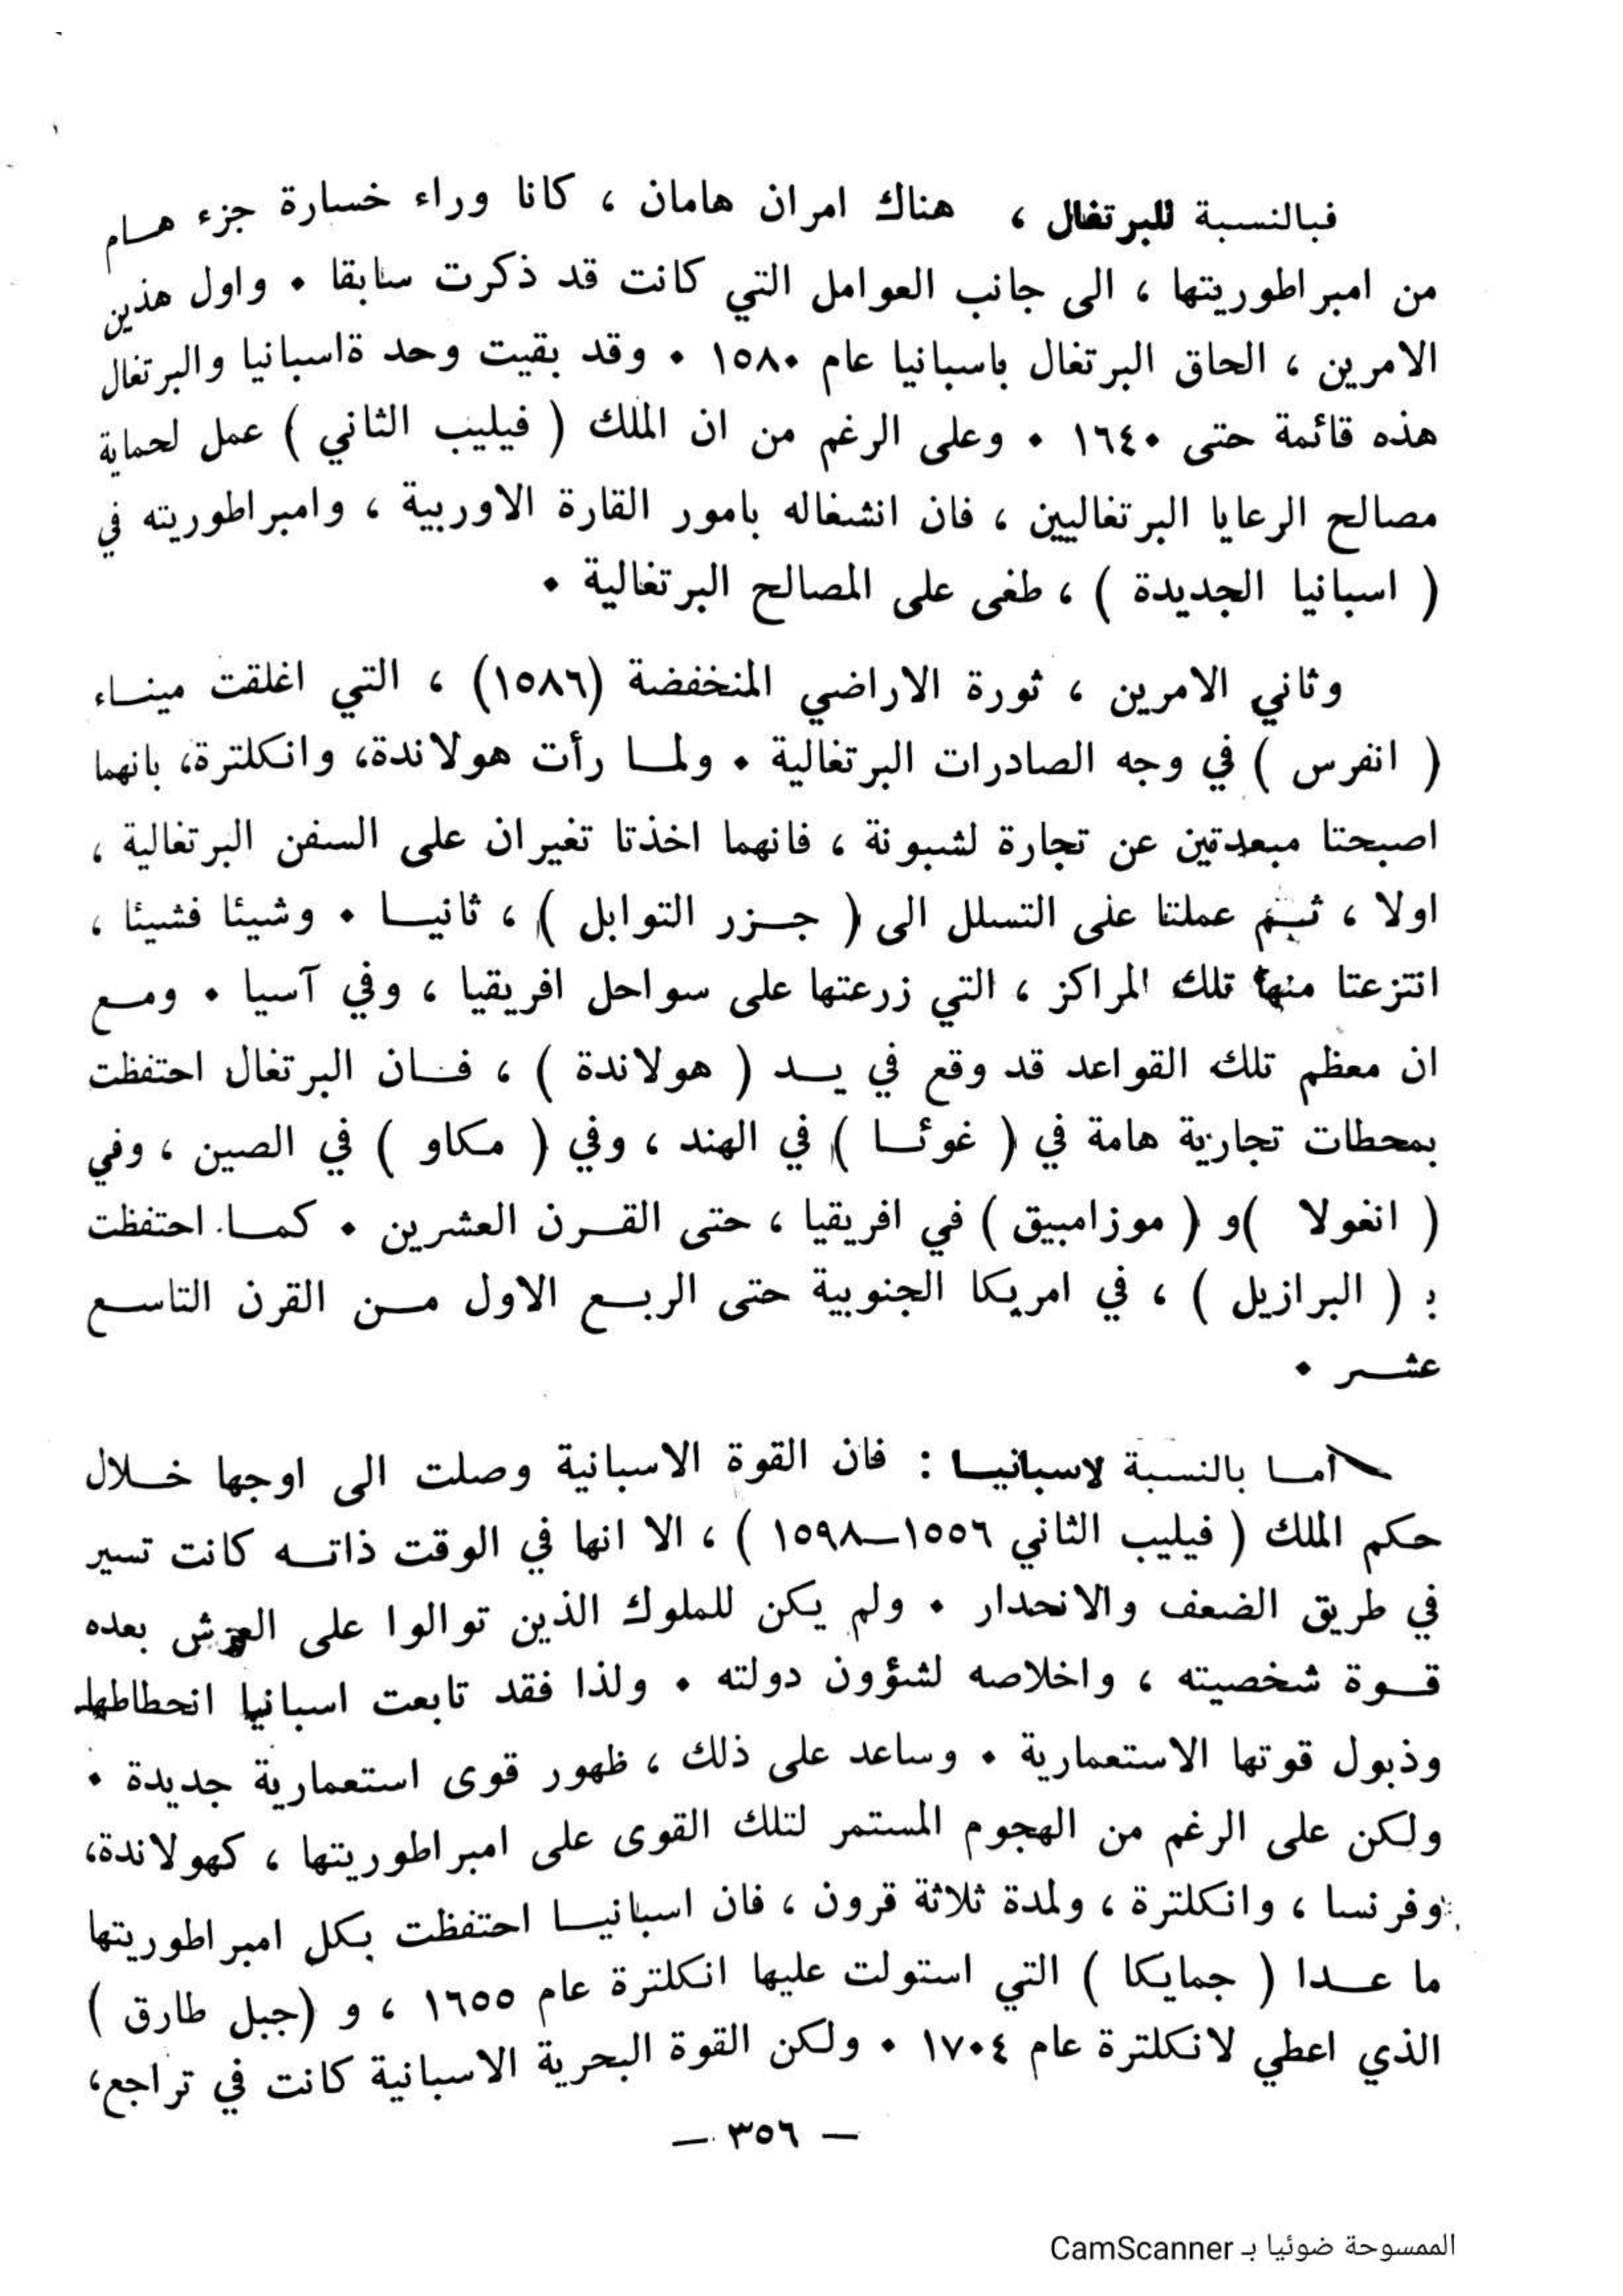 فبالنسبة للبرتغال ، هناك امران هامان ، كانا وراء خسارة جزء هـام
من امبراطوريتها ، الى جانب العوامل التي كانت قد ذكرت سابقا • واول هذين
الامرين ، الحاق البرتغال باسبانيا عام ١٥٨٠ • وقد بقيت وحد ةاسبانيا والبرتغال
هذه قائمة حتى ١٦٤٠ • وعلى الرغم من ان الملك ( فيليب الثاني ) عمل لحماية
مصالح الرعايا البرتغاليين ، فان انشغاله بامور القارة الاوربية ، وامبراطوريته في
( اسبانيا الجديدة ) ، طغى على المصالح البرتغالية •
وثاني الامرين ، ثورة الاراضي المنخفضة (١٥٨٦) ، التي اغلقت مينـاء
( انفرس ) في وجه الصادرات البرتغالية • ولمـا رأت هولاندة، وانكلترة، بانهما
اصبحتا مبعدتين عن تجارة لشبونة ، فانهما اخذتا تغيران على السفن البرتغالية ،
اولا ، ثـم عملتا على التسلل الى ( جـزر التوابل ) ، ثانيـا • وشيئا فشيئا ،
انتزعتا منها تلك المراكز ، التي زرعتها على سواحل افريقيا ، وفي آسيا • ومـع
ان معظم تلك القواعد قد وقع في يـد ( هولاندة ) ، فـان البرتغال احتفظت
بمحطات تجارية هامة في ( غوئـا ) في الهند ، وفي ( مكاو ) في الصين ، وفي
( انغولا )و ( موزامبيق ) في افريقيا ، حتى القـرن العشرين • كمـا احتفظت
بـ ( البرازيل ) ، في امريكا الجنوبية حتى الربـع الاول مـن القرن التاسـع
عشـر •
امـا بالنسبة لاسبانيـا : فان القوة الاسبانية وصلت الى اوجها خـلال
حكم الملك ( فيليب الثاني ١٥٥٦–١٥٩٨ ) ، الا انها في الوقت ذاتـه كانت تسير
في طريق الضعف والانحدار • ولم يكن للملوك الذين توالوا على العرش بعده
قـوة شخصيته ، واخلاصه لشؤون دولته • ولذا فقد تابعت اسبانيا انحطاطها
وذبول قوتها الاستعمارية • وساعد على ذلك ، ظهور قوى استعمارية جديدة •
ولكن على الرغم من الهجوم المستمر لتلك القوى على امبراطوريتها ، كهولاندة،
وفرنسا ، وانكلترة ، ولمدة ثلاثة قرون ، فان اسبانيـا احتفظت بكل امبراطوريتها
ما عـدا ( جمايكا ) التي استولت عليها انكلترة عام ١٦٥٥ ، و (جبل طارق )
الذي اعطي لانكلترة عام ١٧٠٤ • ولكن القوة البحرية الاسبانية كانت في تراجع،
— ٣٥٦ —
الممسوحة ضوئيا بـ CamScanner